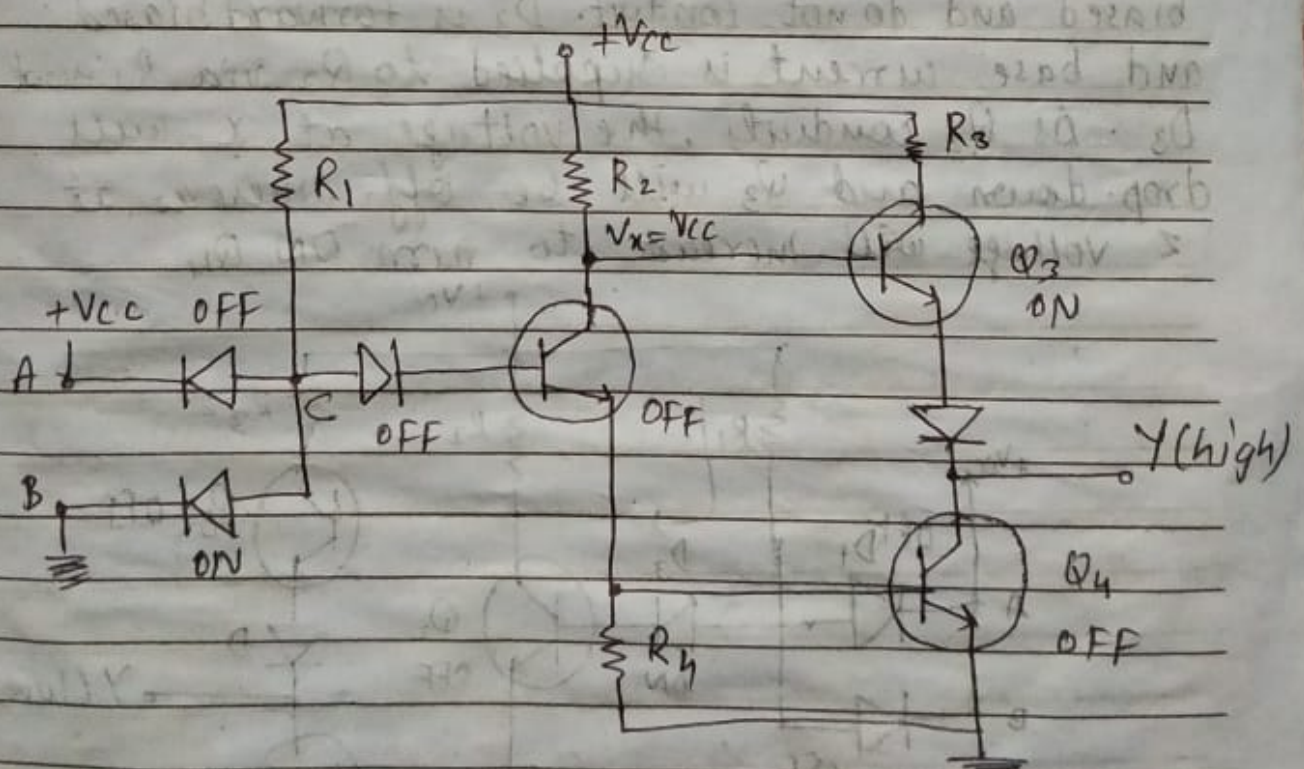 +Vcc
R1
R2
R3
Vx=Vcc
Q3
ON
+Vcc OFF
A
C
OFF
OFF
Y(high)
B
ON
Q4
OFF
R4